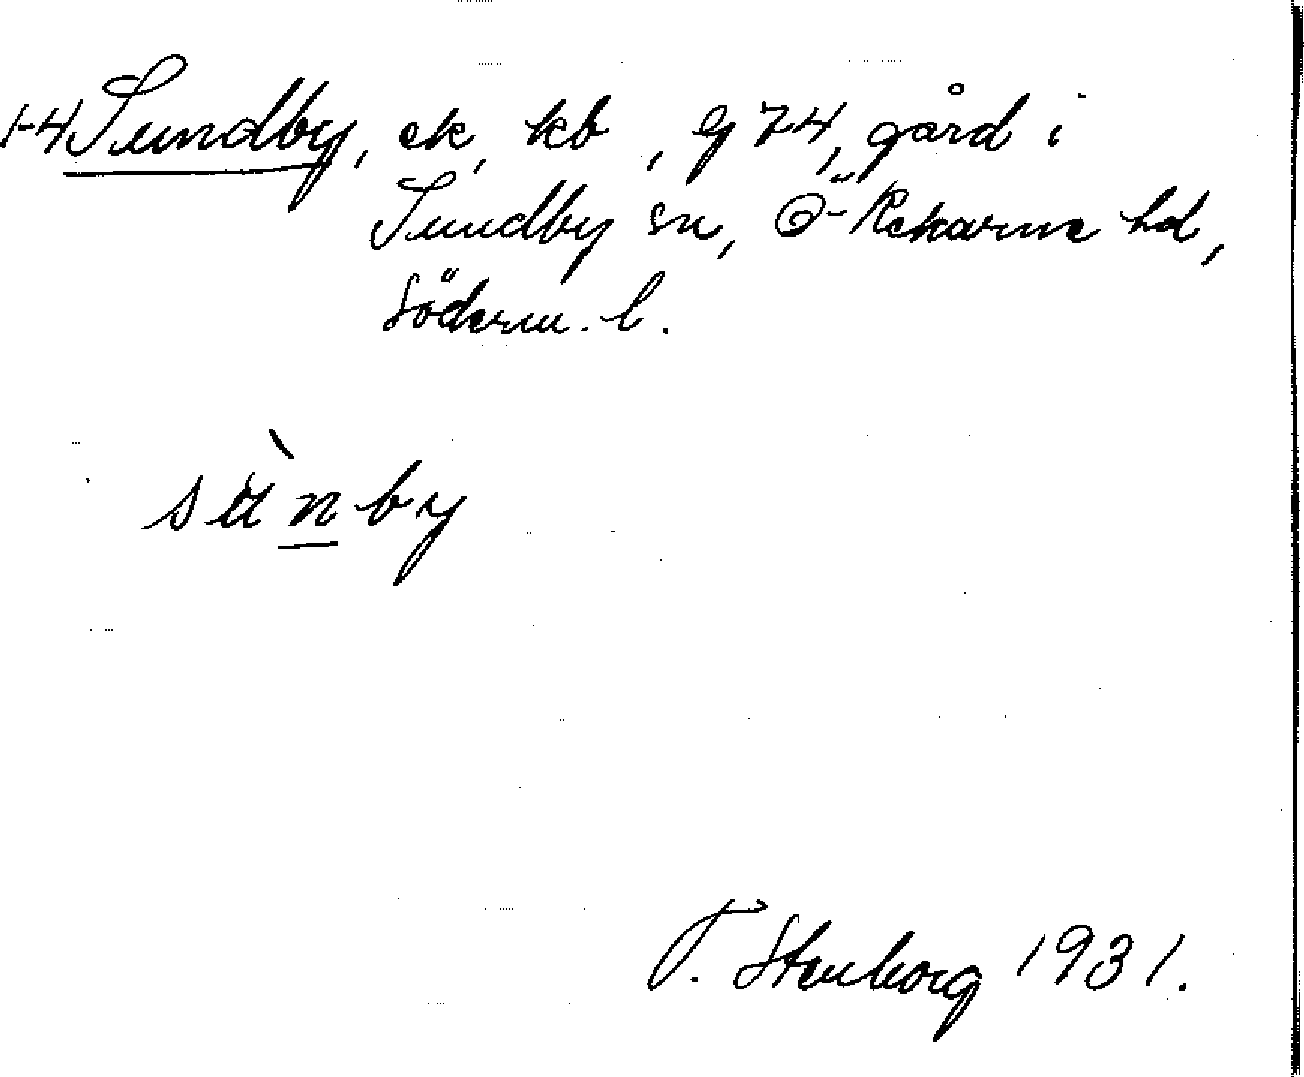 1-4 Sundby, ek, kb, g 74, gård i
Sundby sn, Ö-Rekarne hd,
Söderm. l.
sùnby
T. Stenborg 1931.